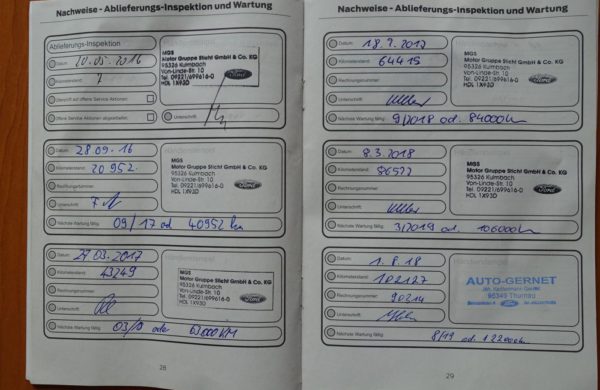 Nachweise - Ablieferungs-Inspektion und Wartung
Ablieferungs-Inspektion
Datum: 20.05.2016
Kilometerstand: 7
Überprüft auf offene Service-Aktionen:
Offene Service-Aktionen abgearbeitet:
Unterschrift:
MGS
Motor Gruppe Sticht GmbH & Co. KG
95326 Kulmbach
Von-Linde-Str. 10
Tel. 09221/699616-0
HDL 1X93D
Ford
Datum: 28.09.16
Kilometerstand: 20952
Rechnungsnummer:
Unterschrift:
Nächste Wartung fällig: 09/17 od 40952 km
MGS
Motor Gruppe Sticht GmbH & Co. KG
95326 Kulmbach
Von-Linde-Str. 10
Tel. 09221/699616-0
HDL 1X93D
Ford
Datum: 27.03.2017
Kilometerstand: 43249
Rechnungsnummer:
Unterschrift:
Nächste Wartung fällig: oder 63000 KM
MGS
Motor Gruppe Sticht GmbH & Co. KG
95326 Kulmbach
Von-Linde-Str. 10
Tel. 09221/699616-0
HDL 1X93D
Ford
28
Nachweise - Ablieferungs-Inspektion und Wartung
Datum: 18.9.2017
Kilometerstand: 64415
Rechnungsnummer:
Unterschrift:
Nächste Wartung fällig: 9/2018 od. 84000km
MGS
Motor Gruppe Sticht GmbH & Co. KG
95326 Kulmbach
Von-Linde-Str. 10
Tel. 09221/699616-0
HDL 1X93D
Ford
Datum: 8.3.2018
Kilometerstand: 86522
Rechnungsnummer:
Unterschrift:
Nächste Wartung fällig: 3/2019 od. 106000km
MGS
Motor Gruppe Sticht GmbH & Co. KG
95326 Kulmbach
Von-Linde-Str. 10
Tel. 09221/699616-0
HDL 1X93D
Ford
Datum: 1.8.18
Kilometerstand: 102127
Rechnungsnummer: 20214
Unterschrift:
Nächste Wartung fällig: 8/19 od. 122000km
AUTO-GERNET
95349 Thurnau
29